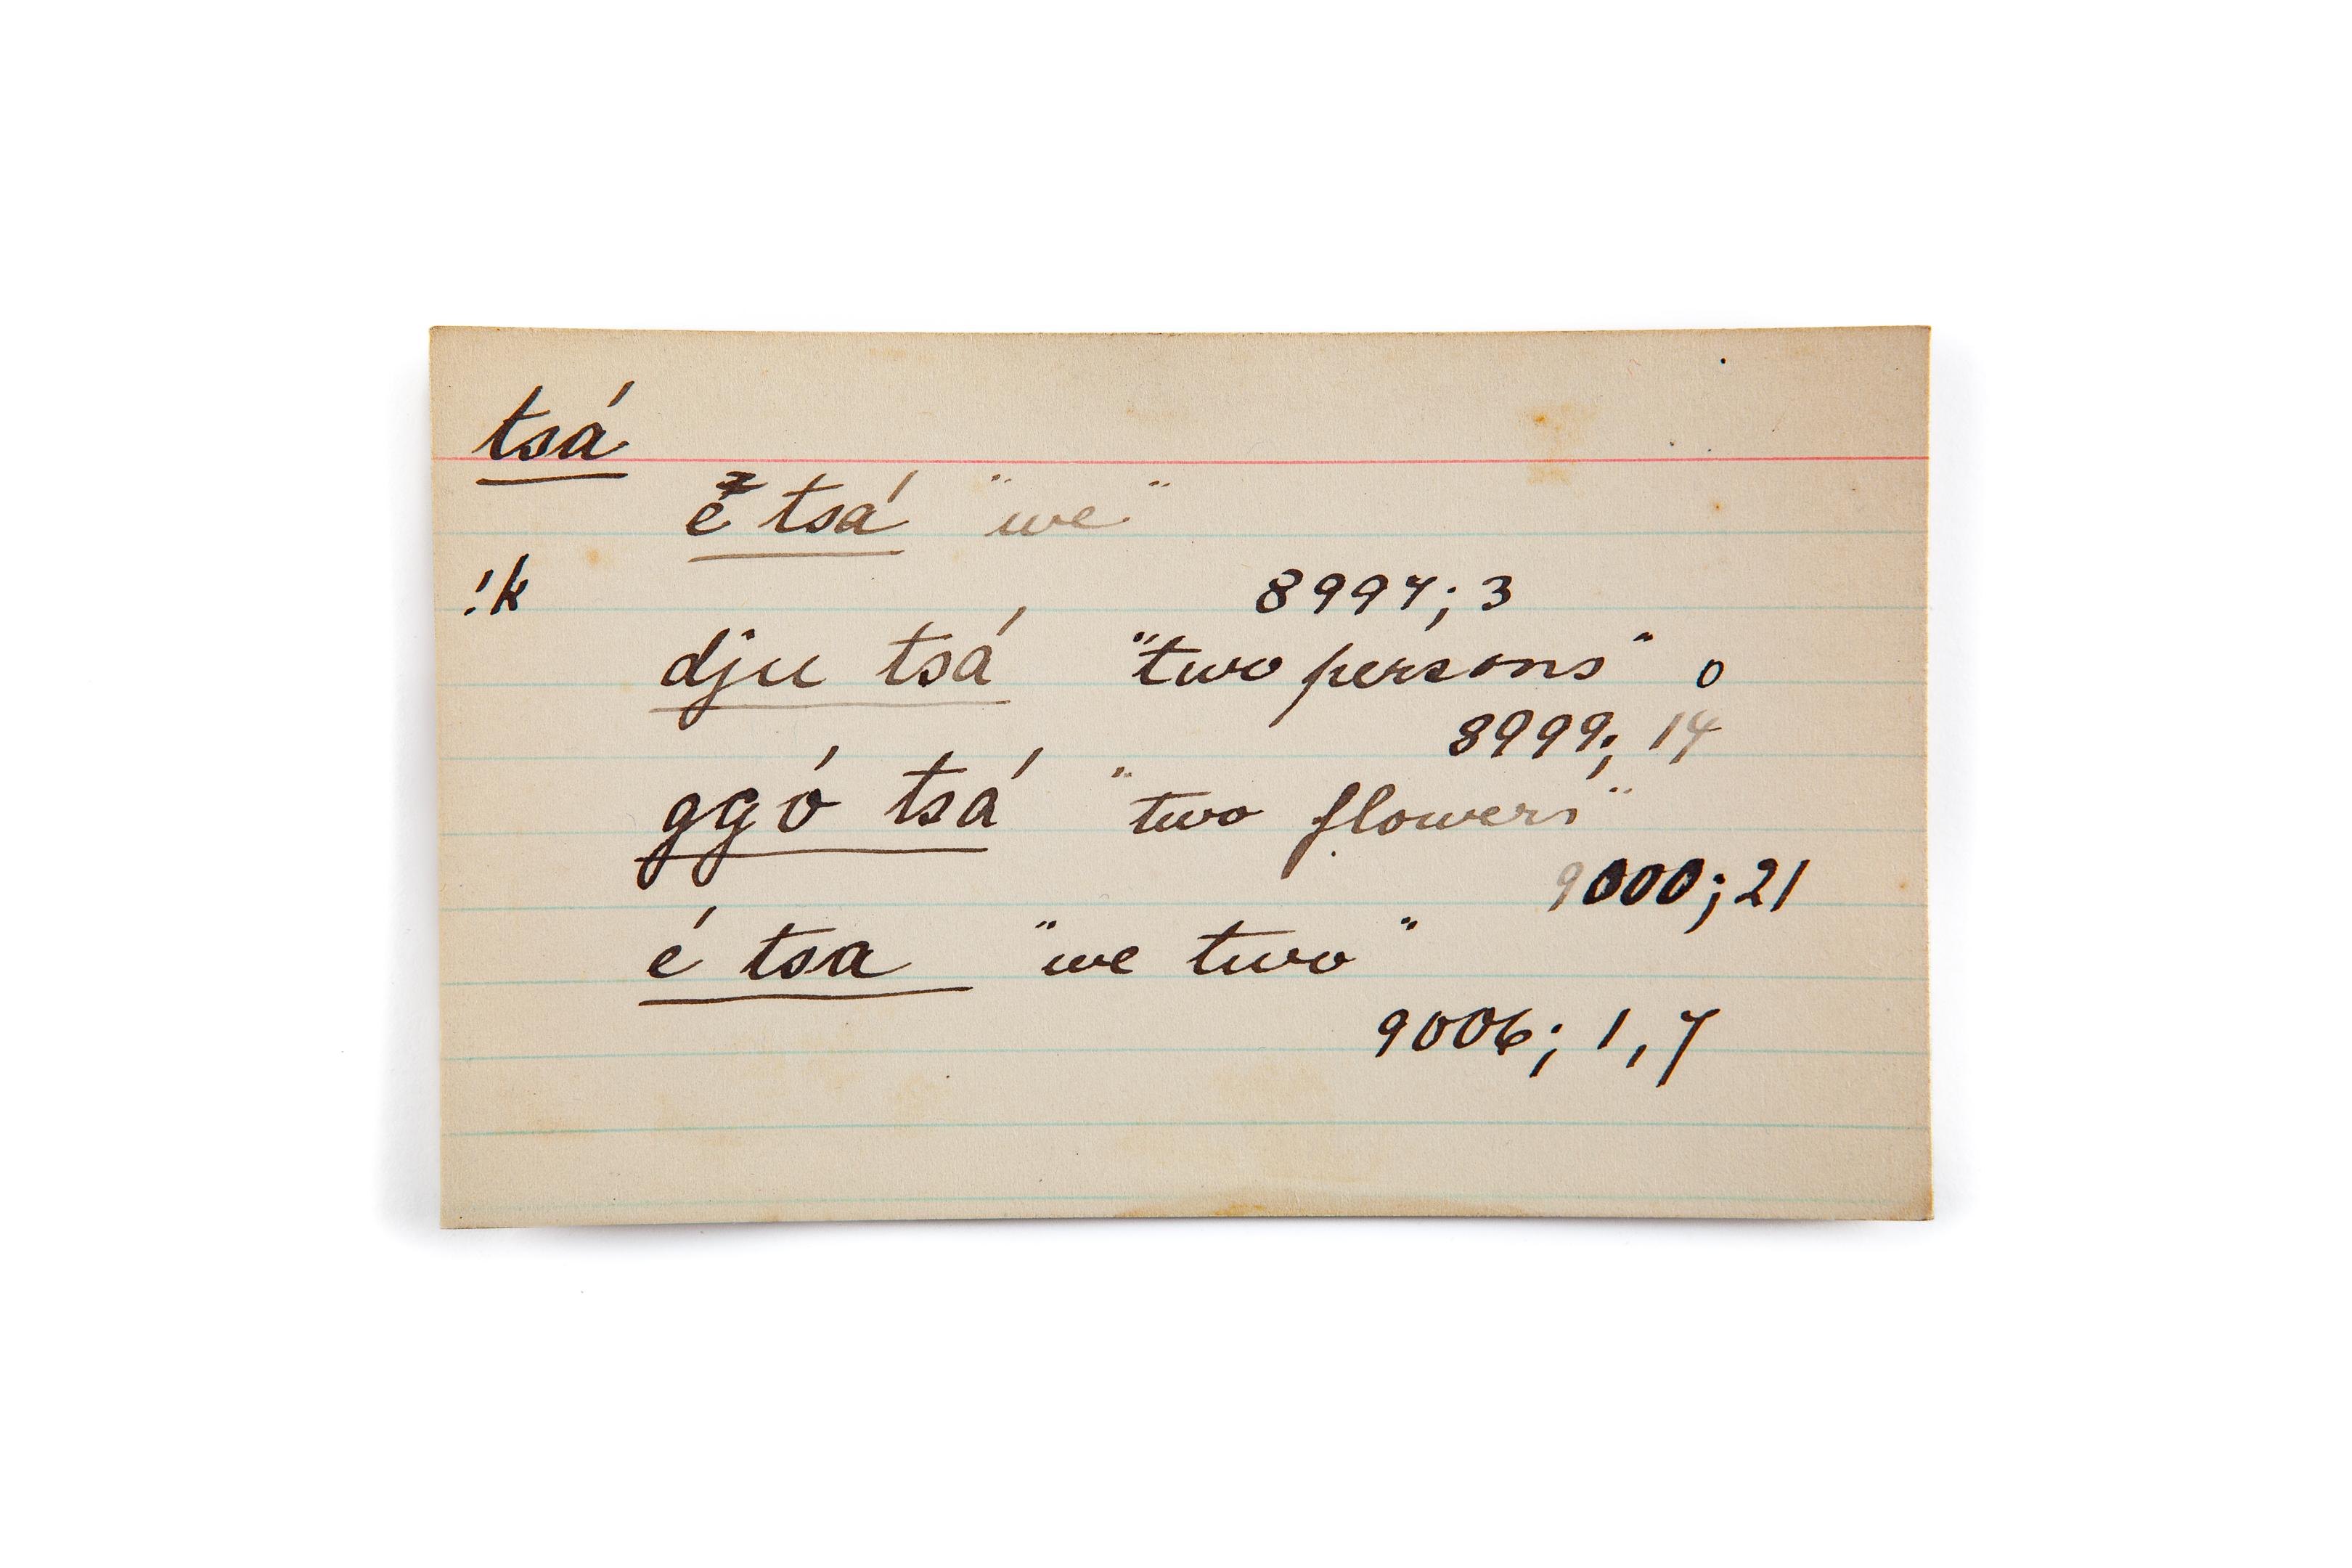 tsá
é tsá "we"
!k 8997; 3
dju tsá "two persons" o
8999; 14
ggó tsá "two flowers"
9000; 21
é tsa "we two"
9006; 1, 7